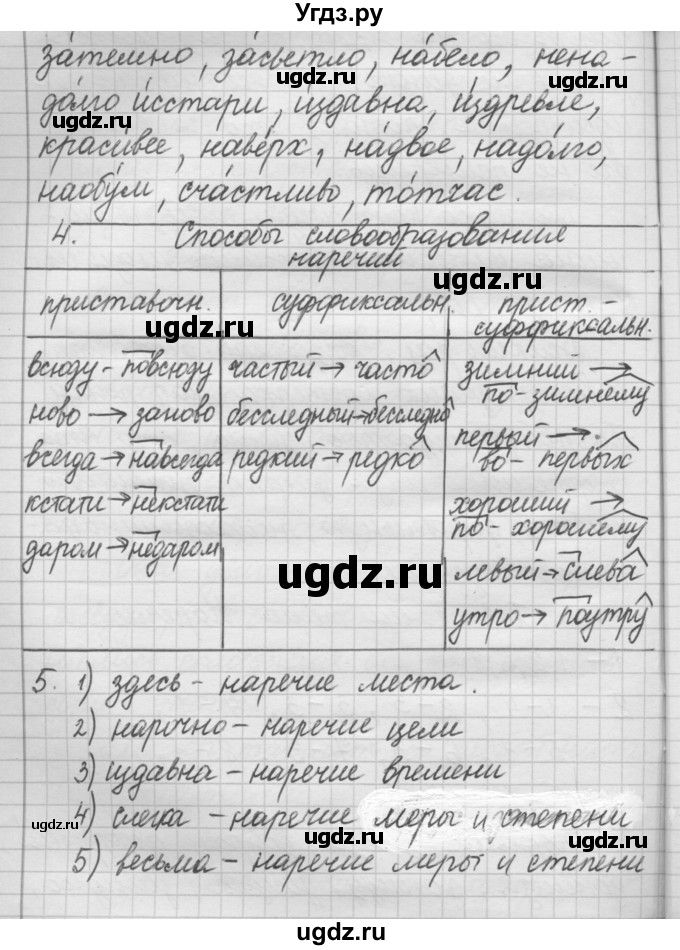 Угдз.ру
за́темно, за́светло, на́бело, нена-
до́лго и́сстари, и́здавна, и́здревле,
краси́вее, наве́рх, на́двое, надо́лго,
наобу́м, сча́стливо, то́тчас.
4. Способы словообразования
наречий
приставочн. суффиксальн. прист.-
суффиксальн.
всюду - повсюду частый → часто зимний →
по-зимнему
ново → заново бесследный → бесследно
первый →
во-первых
всегда → навсегда редкий → редко
кстати → некстати хороший →
по-хорошему
даром → недаром левый → слева
утро → поутру
5. 1) здесь - наречие места.
2) нарочно - наречие цели
3) издавна - наречие времени
4) слегка - наречие меры и степени
5) весьма - наречие меры и степени
ugdz.ru
ugdz.ru
ugdz.ru
ugdz.ru
ugdz.ru
ugdz.ru
ugdz.ru
ugdz.ru
ugdz.ru
ugdz.ru